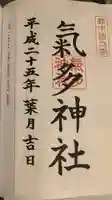 氣多神社
平成二十五年葉月吉日